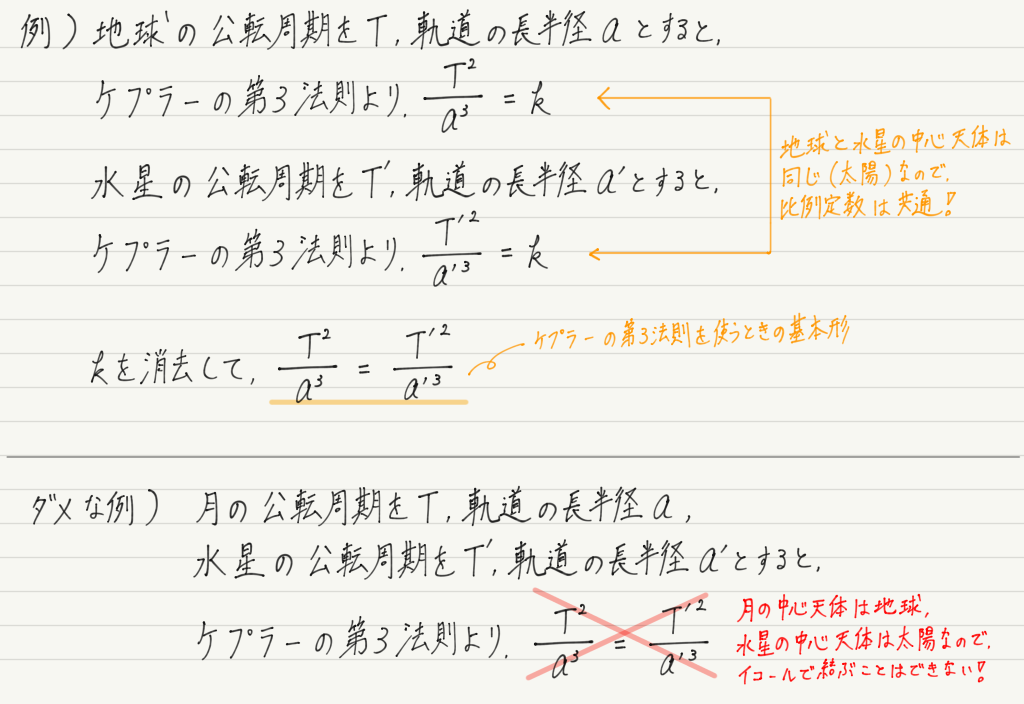 例）地球の公転周期をT，軌道の長半径aとすると，
ケプラーの第3法則より，T²/a³ = k
地球と水星の中心天体は
同じ（太陽）なので，
比例定数は共通！
水星の公転周期をT′，軌道の長半径a′とすると，
ケプラーの第3法則より，T′²/a′³ = k
kを消去して，T²/a³ = T′²/a′³
ケプラーの第3法則を使うときの基本形
ダメな例） 月の公転周期をT，軌道の長半径a，
水星の公転周期をT′，軌道の長半径a′とすると，
ケプラーの第3法則より，T²/a³ = T′²/a′³
月の中心天体は地球，
水星の中心天体は太陽なので，
イコールで結ぶことはできない！